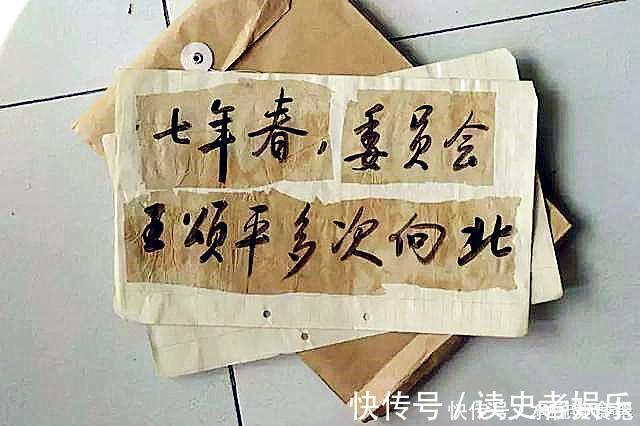 七年春，委员会
王颂平多次向北
快传号／读史老娱乐